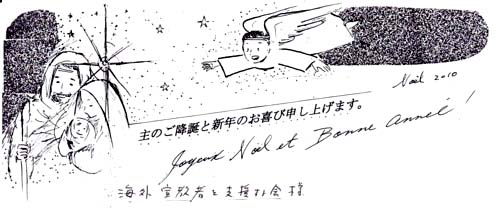 Noël 2010
主のご降誕と新年のお喜び申し上げます。
Joyeux Noël et Bonne Année!
海外宣教者を支援する会 様